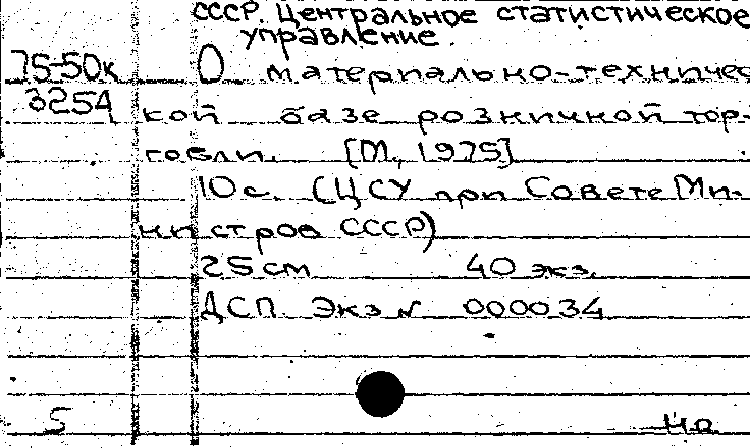 СССР. Центральное статистическое
управление.
75-50к О материально-техничес
3254 кой базе розничной тор-
говли. [М., 1975]
10 с. (ЦСУ при Совете Ми-
нистров СССР)
25 см 40 экз.
ДСП. Экз № 000034
5